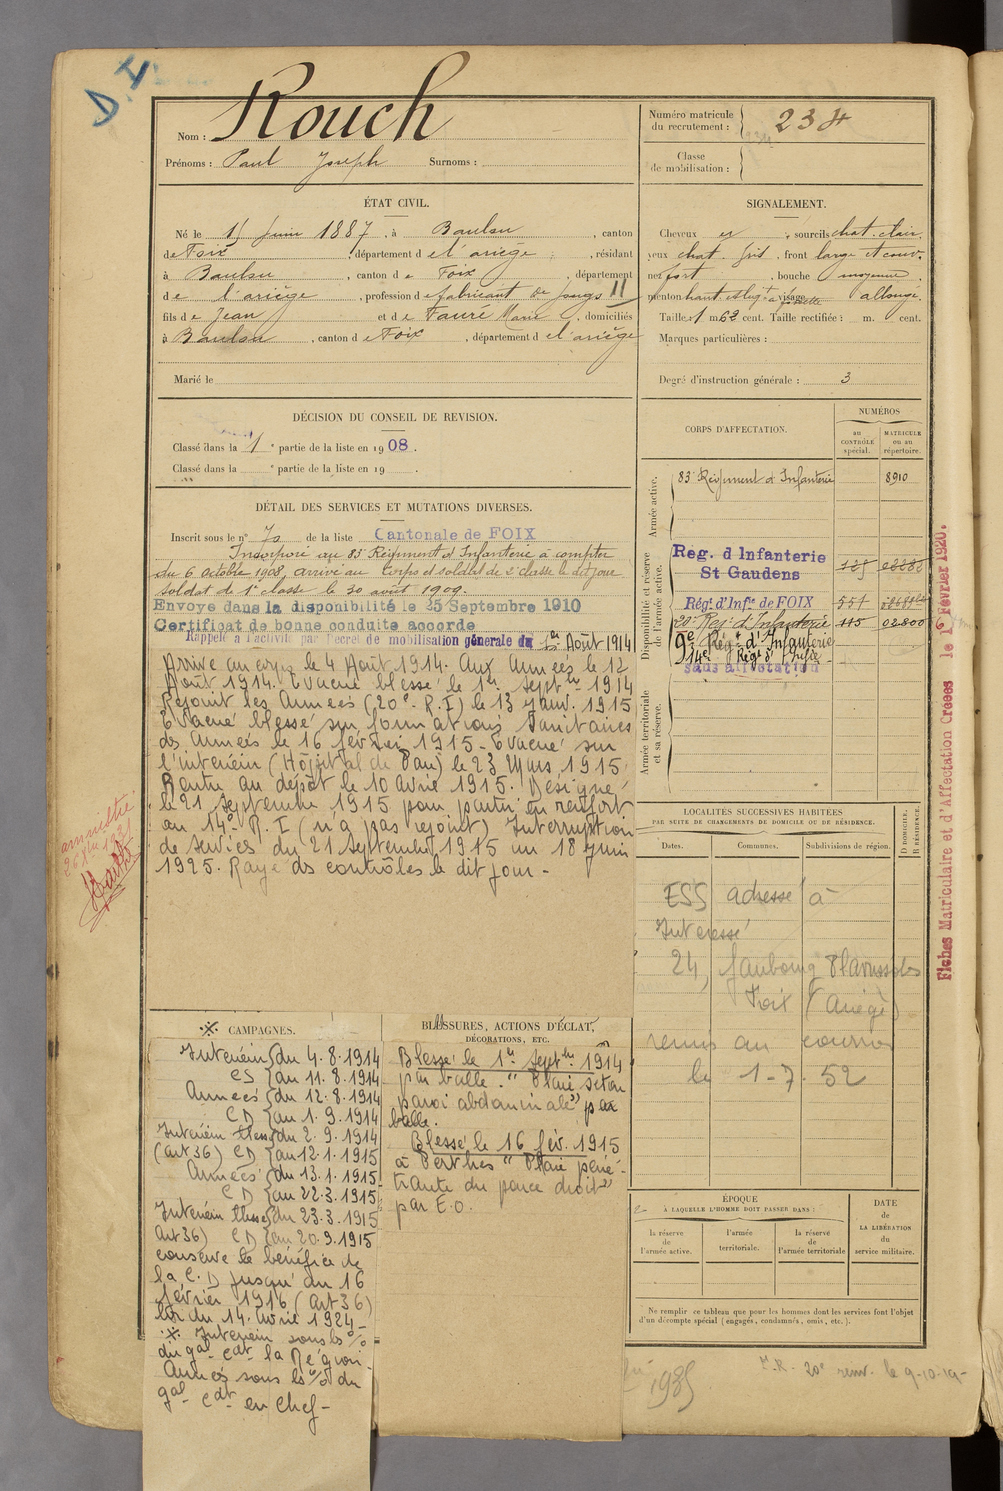 D.I.
Nom : Rouch
Prénoms : Paul Joseph Surnoms :
Numéro matricule
du recrutement : 234
Classe
de mobilisation :
ÉTAT CIVIL.
Né le 15 Juin 1887, à Baulou, canton
de Foix, département de l'ariège, résidant
à Baulou, canton de Foix, département
de l'ariège, profession de fabricant de jougs
fils de Jean et de Faure Marie, domiciliés
à Baulou, canton de Foix, département de l'ariège
Marié le
SIGNALEMENT.
Cheveux et, sourcils chat. clair.
yeux chat. gris, front large et couv.
nez fort, bouche moyenne
menton haut, visage allongé.
Taille : 1 m 62 cent. Taille rectifiée : m. cent.
Marques particulières :
Degré d'instruction générale : 3
DÉCISION DU CONSEIL DE REVISION.
Classé dans la 1e partie de la liste en 1908.
Classé dans la e partie de la liste en 19 .
DÉTAIL DES SERVICES ET MUTATIONS DIVERSES.
Inscrit sous le n° 70 de la liste Cantonale de FOIX
Incorporé au 83e Régiment d'Infanterie à compter
du 6 octobre 1908, arrivé au Corps et soldat de 2e classe le dit jour
soldat de 1e classe le 30 août 1909.
Envoyé dans la disponibilité le 25 Septembre 1910
Certificat de bonne conduite accordé
Rappelé à l'activité par Décret de mobilisation générale du 1er Août 1914
Arrivé au corps le 4 Août 1914. Aux Armées le 12
Août 1914. Evacué blessé le 1er Septbre 1914
Rejoint les Armées (20e R.I) le 13 Janv. 1915
Evacué blessé sur formations Sanitaires
des Armées le 16 février 1915 - Evacué sur
l'intérieur (Hôpital de Pau) le 23 Mars 1915.
Rentré au dépôt le 10 Avril 1915. Désigné
le 21 Septembre 1915 pour partir en renfort
au 14e R.I (n'a pas rejoint) Interruption
de services du 21 Septembre 1915 au 18 Juin
1925. Rayé des contrôles le dit jour -
amnistié
CORPS D'AFFECTATION.
NUMÉROS
au
CONTRÔLE
spécial.
MATRICULE
ou au
répertoire.
Armée active.
83e Régiment d'Infanterie 8910
Disponibilité et réserve
de l'armée active.
Rég. d Infanterie
St Gaudens
Régt d'Infie de FOIX 557
20e Régt d'Infanterie 115 02.800
9e Régt d'Infanterie
14e Régt d'Infie
sans affectation
Armée territoriale
et sa réserve.
Fiches Matriculaire et d'Affectation Créées le 1er Février 1920.
LOCALITÉS SUCCESSIVES HABITÉES
PAR SUITE DE CHANGEMENTS DE DOMICILE OU DE RÉSIDENCE.
Dates. Communes. Subdivisions de région. D DOMICILE. R RÉSIDENCE.
ESS adressé à
Intéressé
24, faubourg Planissoles
Foix (Ariège)
remis au courrier
le 1-7-52
CAMPAGNES.
Intérieur du 4.8.1914
CS au 11.8.1914
Armées du 12.8.1914
CD au 1.9.1914
Intérieur blessé du 2.9.1914
(art 36) CD au 12.1.1915
Armées du 13.1.1915
CD au 22.3.1915
Intérieur blessé du 23.3.1915
art 36) CD au 20.9.1915
conserve le bénéfice de
la C.D jusqu'au 16
février 1916 (Art 36)
loi du 14 Avril 1924 -
Intérieur sous les o/o
du gal cdt la Région.
Armées sous les o/o du
gal cdt en Chef -
BLESSURES, ACTIONS D'ÉCLAT,
DÉCORATIONS, ETC.
Blessé le 1er Septbre 1914
par balle. "Plaie séton
paroi abdominale" par
balle.
Blessé le 16 fév. 1915
à Perthes "Plaie péné-
trante du pouce droit"
par E.O.
ÉPOQUE
À LAQUELLE L'HOMME DOIT PASSER DANS :
la réserve
de
l'armée active.
l'armée
territoriale.
la réserve
de
l'armée territoriale
DATE
de
LA LIBÉRATION
du
service militaire.
Ne remplir ce tableau que pour les hommes dont les services font l'objet
d'un décompte spécial (engagés, condamnés, omis, etc.).
1935